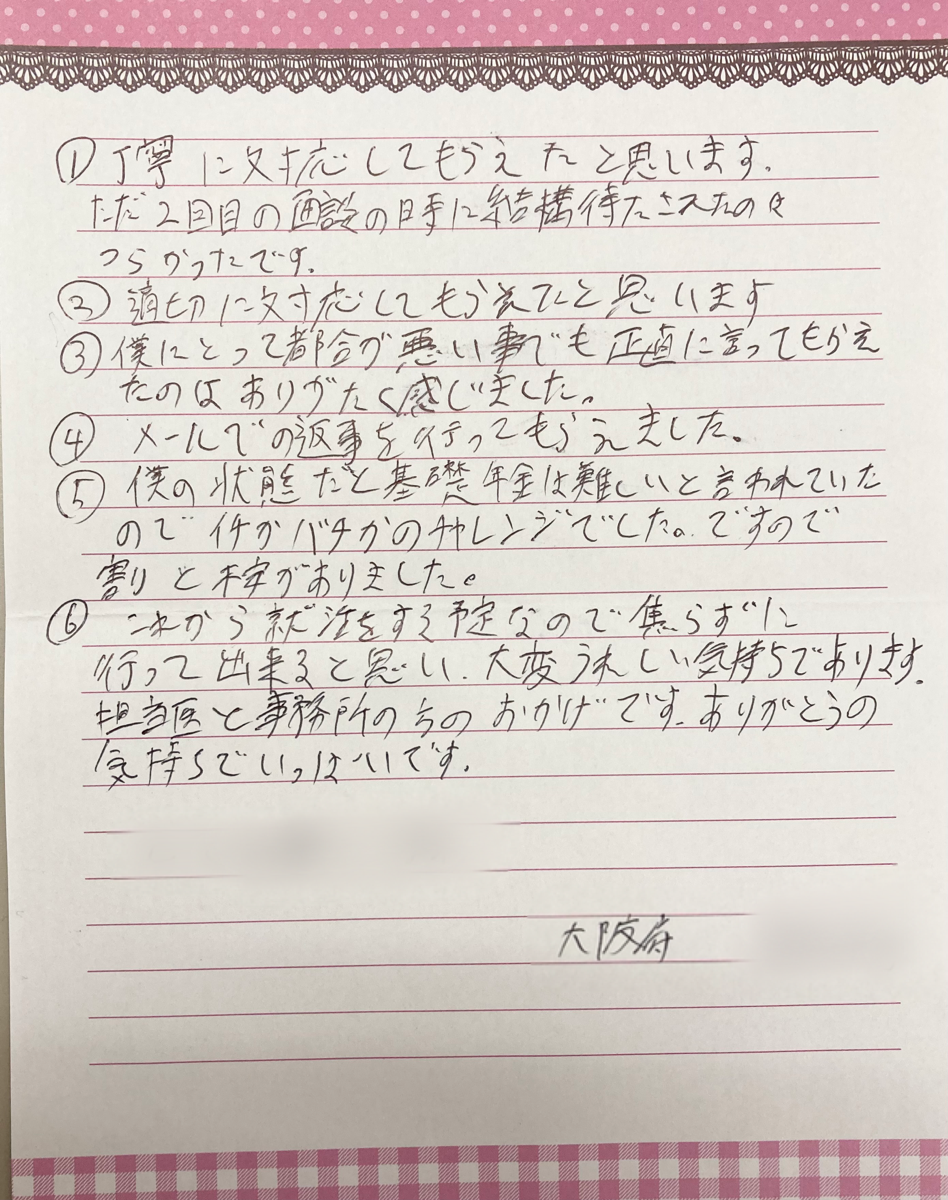 ① 丁寧に対応してもらえたと思います。
ただ2回目の面談の時に結構待たされたのは
つらかったです。
② 適切に対応してもらえたと思います
③ 僕にとって都合が悪い事でも正直に言ってもらえ
たのはありがたく感じました。
④ メールでの返事を行ってもらえました。
⑤ 僕の状態だと基礎年金は難しいと言われていた
のでイチかバチかのチャレンジでした。ですので
割りと不安がありました。
⑥ これから就活をする予定なので焦らずに
行って出来ると思い、大変うれしい気持ちであります。
担当医と事務所の方のおかげです。ありがとうの
気持ちでいっぱいです。
大阪府